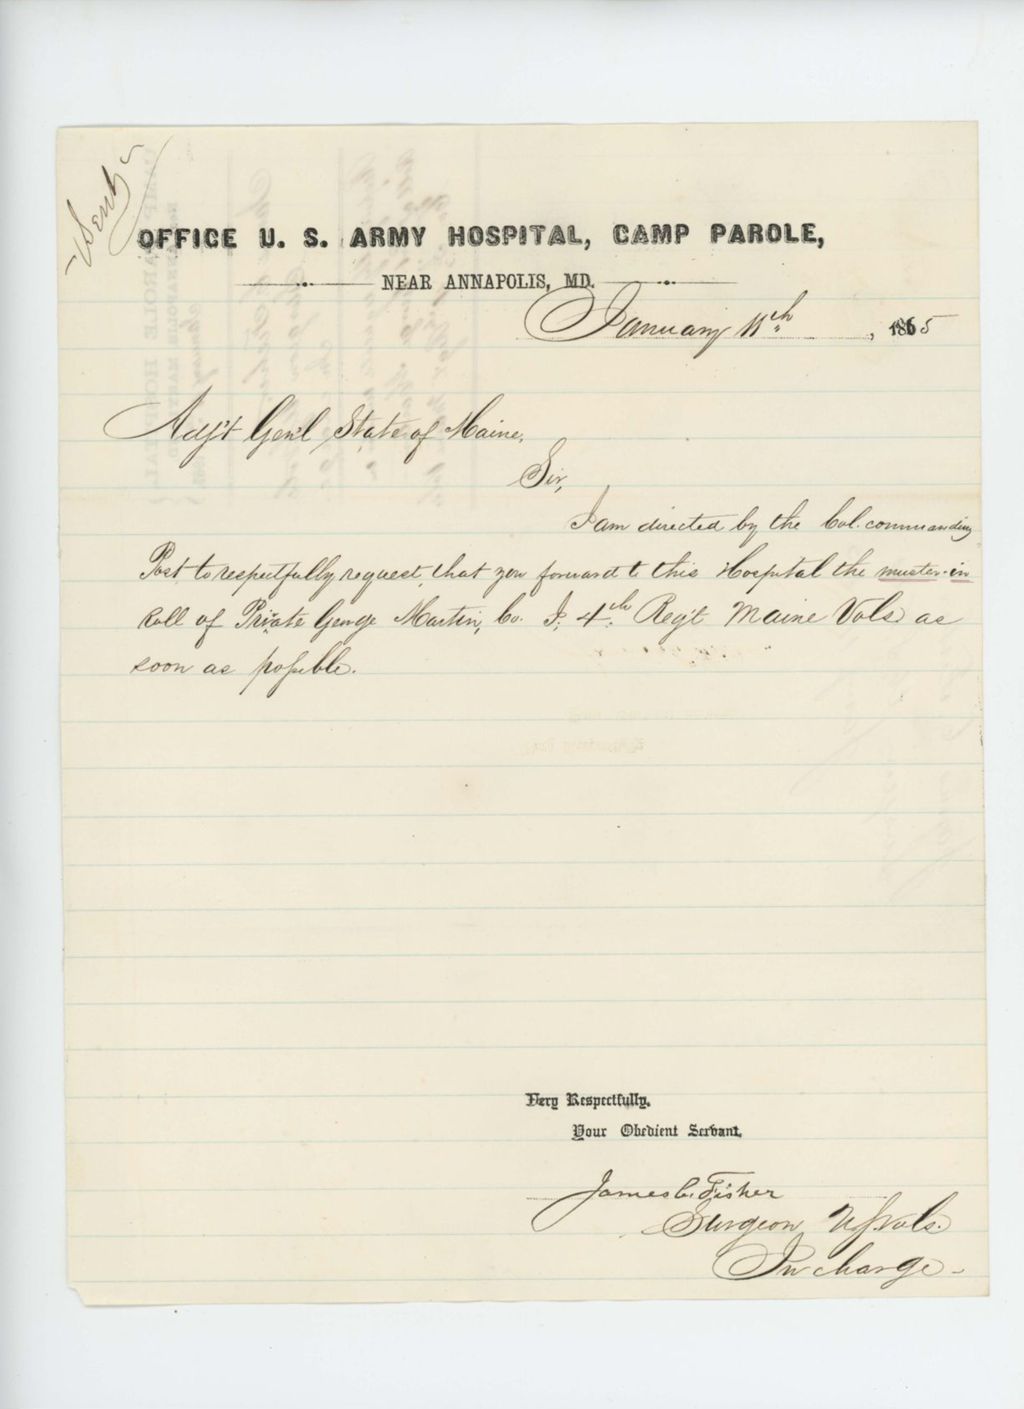 Sent
OFFICE U. S. ARMY HOSPITAL, CAMP PAROLE,
NEAR ANNAPOLIS, MD.
January 11th, 1865
Adj't Gen'l State of Maine,
Sir,
I am directed by the Col. commanding
Post to respectfully request, that you forward to this Hospital the muster-in
roll of Private George Martin, Co. I, 4th Reg't Maine Vols. as
soon as possible.
Very Respectfully,
Your Obedient Servant,
James C. Fisher
Surgeon U.S. Vols.
In charge